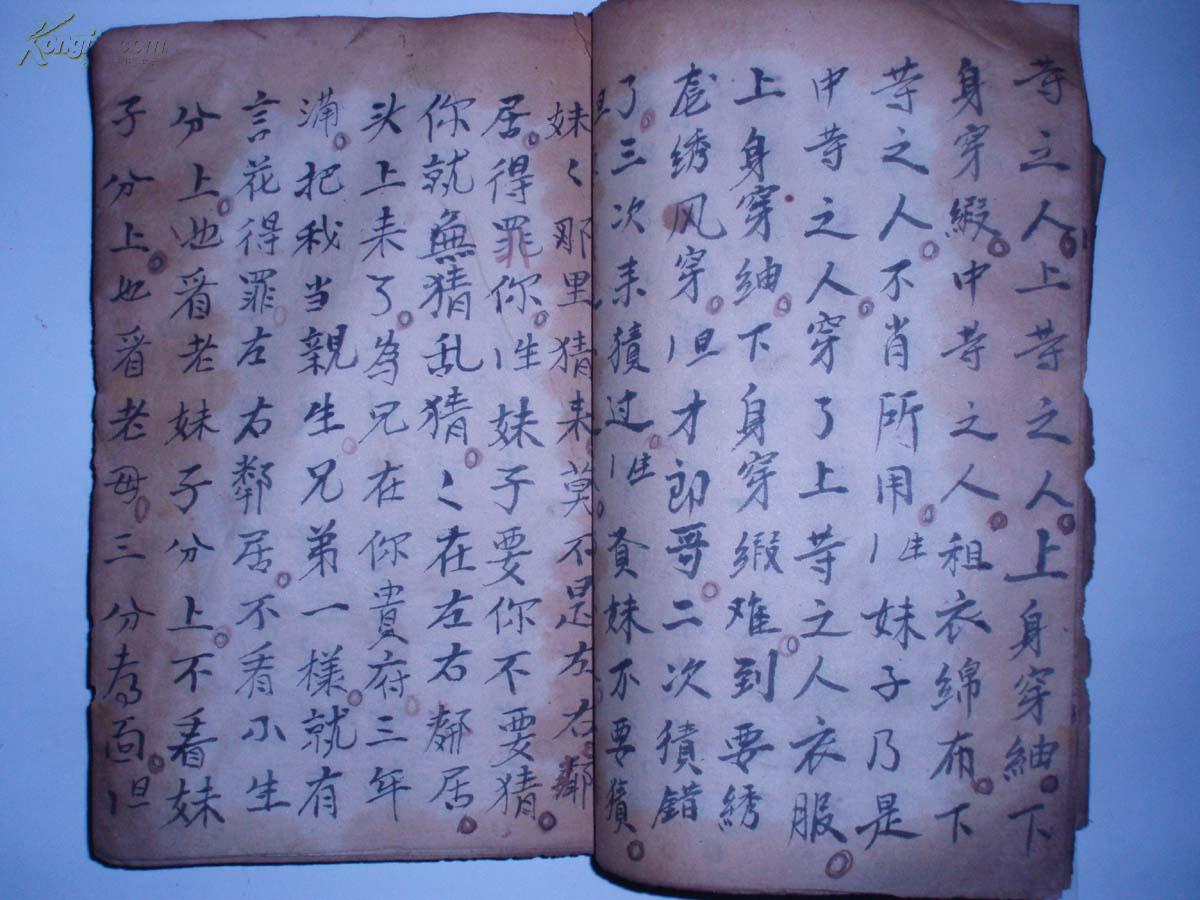 寺之人上寺之人上身穿紬下
身穿緞中寺之人粗衣綿布下
寺之人不肖所用 生妹子乃是
中寺之人穿了上寺之人衣服
上身穿紬下身穿緞难到要綉
龙绣风穿 旦才郎哥二次猜錯
了三次来猜过 生 贤妹不要猜
妹〻那里猜来莫不是左右鄰
居得罪你 生妹子要你不要猜
你就無猜乱猜〻在左右鄰居
头上来了為兄在你貴府三年
满把我当親生兄弟一樣就有
言花得罪左右鄰居不看小生
分上也看老妹子分上不看妹
子分上也看老母三分 面 旦
Kongfz.com